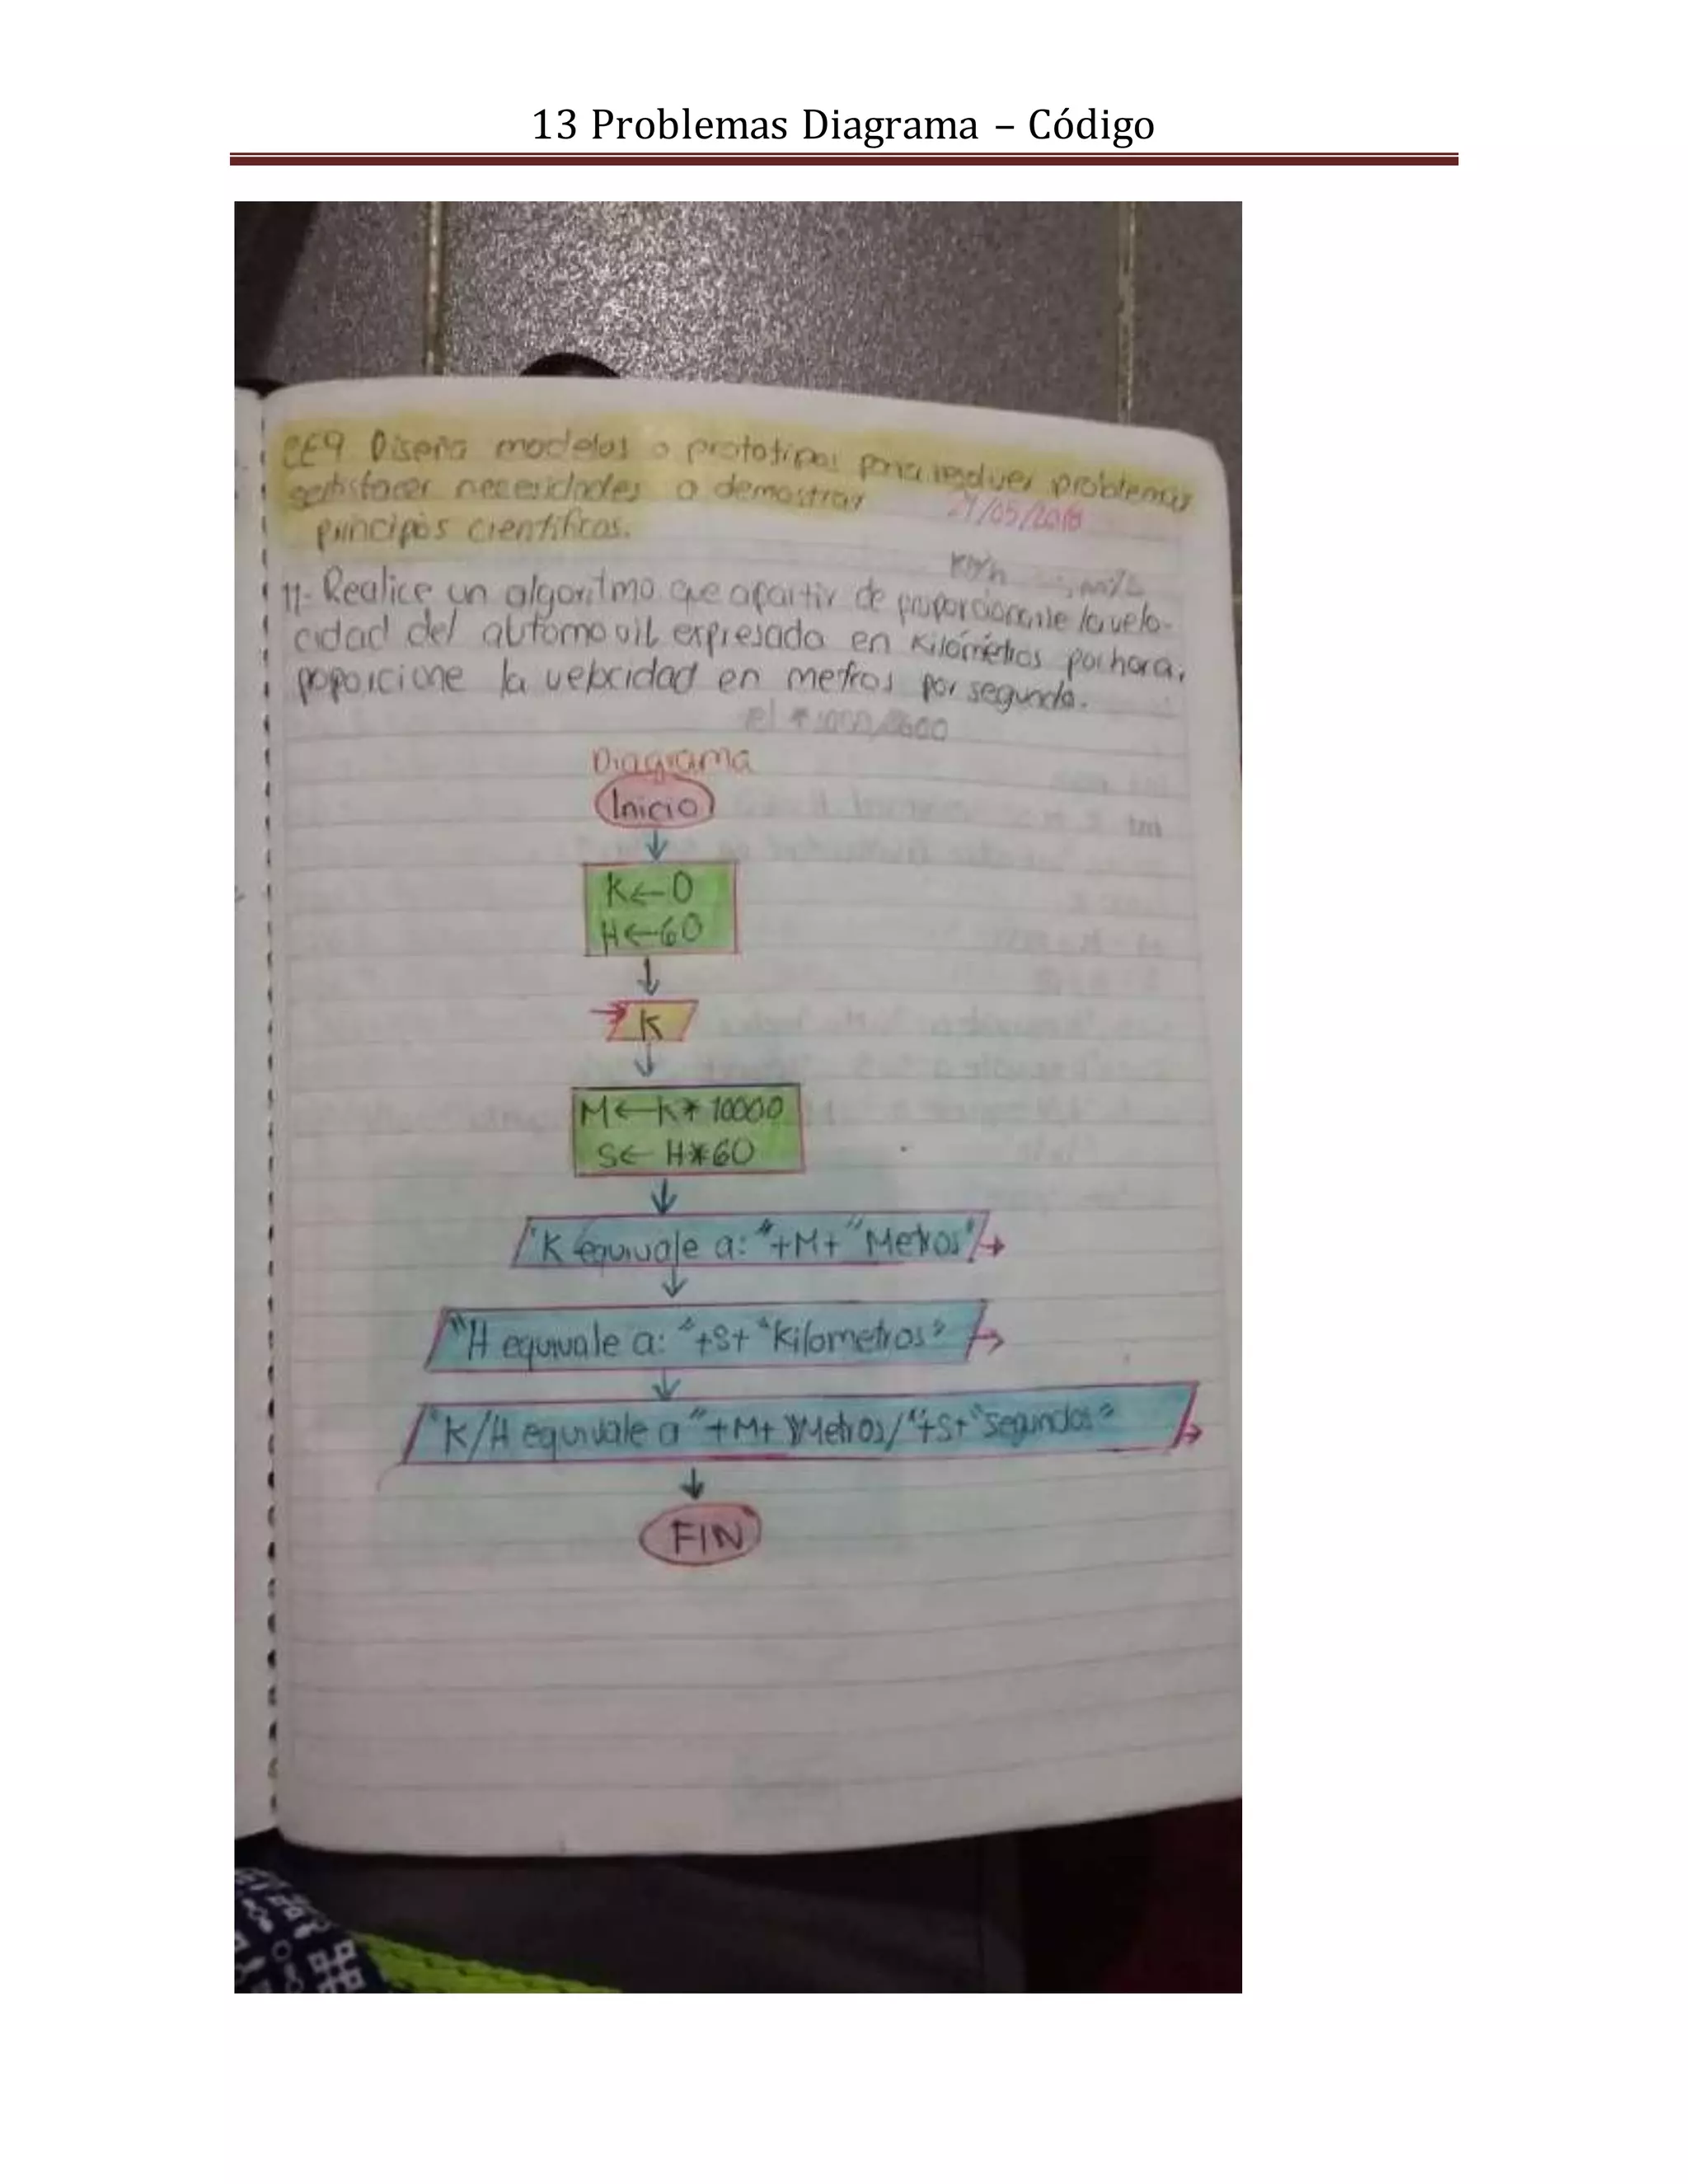 13 Problemas Diagrama – Código
CE9 Diseña modelos o prototipos para resolver problemas
satisfacer necesidades o demostrar
principios científicos.
Km/h m/s
11- Realice un algoritmo que apartir de proporcionarle la velo-
cidad del automovil expresada en Kilómetros por hora,
poporcione la velocidad en metros por segundo.
el * 1000/3600
Diagrama
Inicio
K←0
H←60
K
M←K*10000
S← H*60
"K equivale a: "+M+ "Metros"
"H equivale a: "+S+ "Kilometros"
"K/H equivale a "+M+ "Metros/"+S+"segundos"
FIN